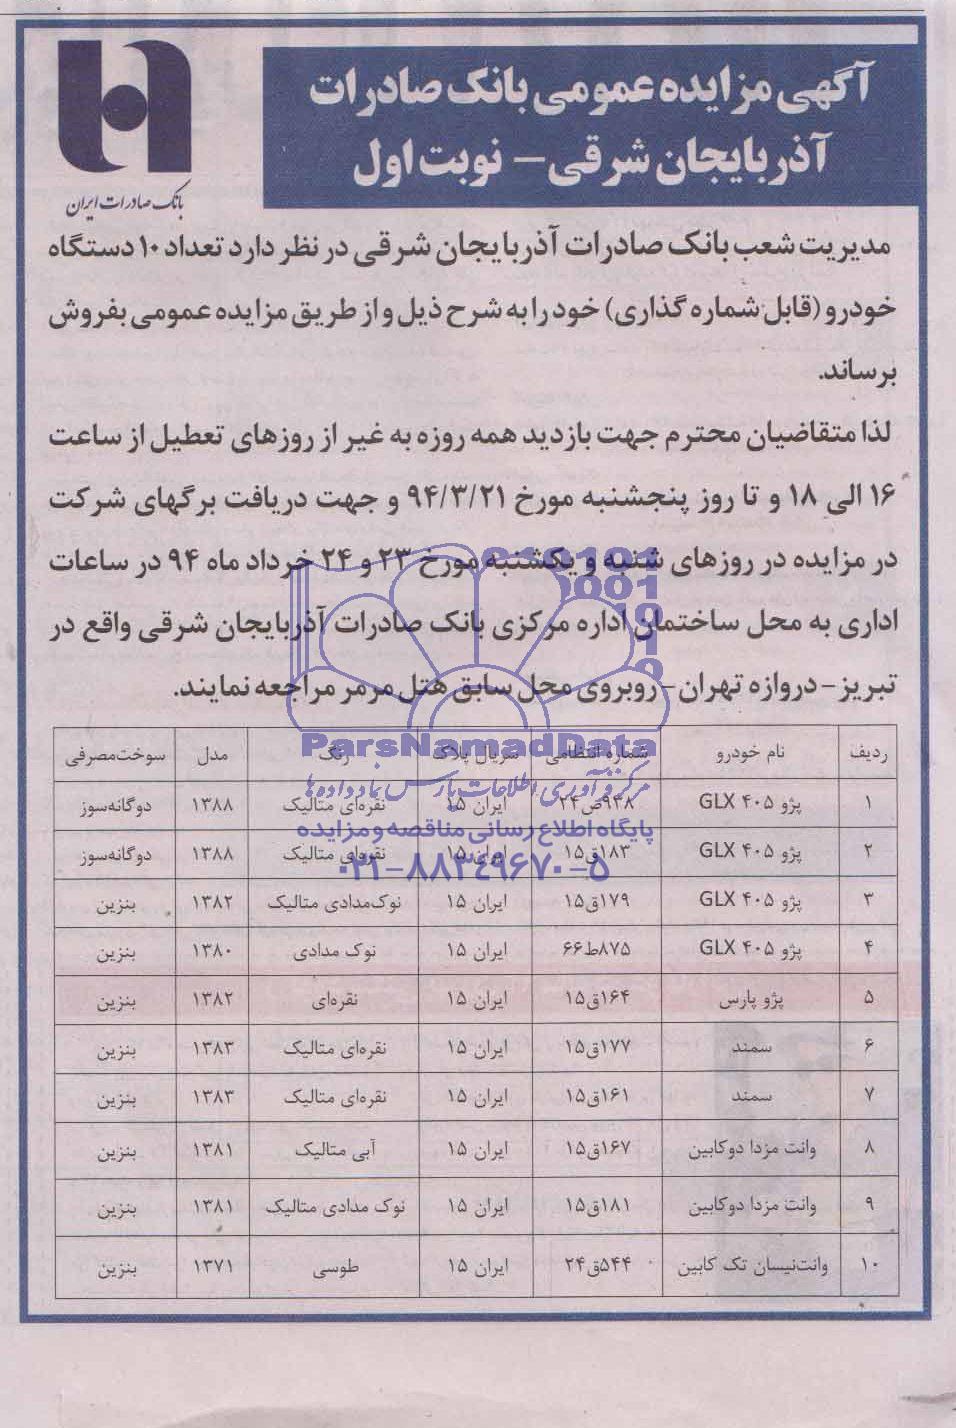 آگهی مزایده عمومی بانک صادرات
آذربایجان شرقی - نوبت اول
بانک صادرات ایران
مدیریت شعب بانک صادرات آذربایجان شرقی در نظر دارد تعداد ۱۰ دستگاه
خودرو (قابل شماره گذاری) خود را به شرح ذیل و از طریق مزایده عمومی بفروش
برساند.
لذا متقاضیان محترم جهت بازدید همه روزه به غیر از روزهای تعطیل از ساعت
۱۶ الی ۱۸ و تا روز پنجشنبه مورخ ۹۴/۳/۲۱ و جهت دریافت برگهای شرکت
در مزایده در روزهای شنبه و یکشنبه مورخ ۲۳ و ۲۴ خرداد ماه ۹۴ در ساعات
اداری به محل ساختمان اداره مرکزی بانک صادرات آذربایجان شرقی واقع در
تبریز - دروازه تهران - روبروی محل سابق هتل مرمر مراجعه نمایند.
ردیف نام خودرو شماره انتظامی سریال پلاک رنگ مدل سوخت‌مصرفی
۱ پژو ۴۰۵ GLX ۹۳۸ص۲۴ ایران ۱۵ نقره‌ای متالیک ۱۳۸۸ دوگانه‌سوز
۲ پژو ۴۰۵ GLX ۱۸۳ق۱۵ ایران ۱۵ نقره‌ای متالیک ۱۳۸۸ دوگانه‌سوز
۳ پژو ۴۰۵ GLX ۱۷۹ق۱۵ ایران ۱۵ نوک‌مدادی متالیک ۱۳۸۲ بنزین
۴ پژو ۴۰۵ GLX ۸۷۵ط۶۶ ایران ۱۵ نوک مدادی ۱۳۸۰ بنزین
۵ پژو پارس ۱۶۴ق۱۵ ایران ۱۵ نقره‌ای ۱۳۸۲ بنزین
۶ سمند ۱۷۷ق۱۵ ایران ۱۵ نقره‌ای متالیک ۱۳۸۳ بنزین
۷ سمند ۱۶۱ق۱۵ ایران ۱۵ نقره‌ای متالیک ۱۳۸۳ بنزین
۸ وانت مزدا دوکابین ۱۶۷ق۱۵ ایران ۱۵ آبی متالیک ۱۳۸۱ بنزین
۹ وانت مزدا دوکابین ۱۸۱ق۱۵ ایران ۱۵ نوک مدادی متالیک ۱۳۸۱ بنزین
۱۰ وانت‌نیسان تک کابین ۵۴۴ق۲۴ ایران ۱۵ طوسی ۱۳۷۱ بنزین
ParsNamadData
مرکز فرآوری اطلاعات پارس نماد داده‌ها
پایگاه اطلاع رسانی مناقصه و مزایده
۰۲۱-۸۸۳۴۹۶۷۰-۵